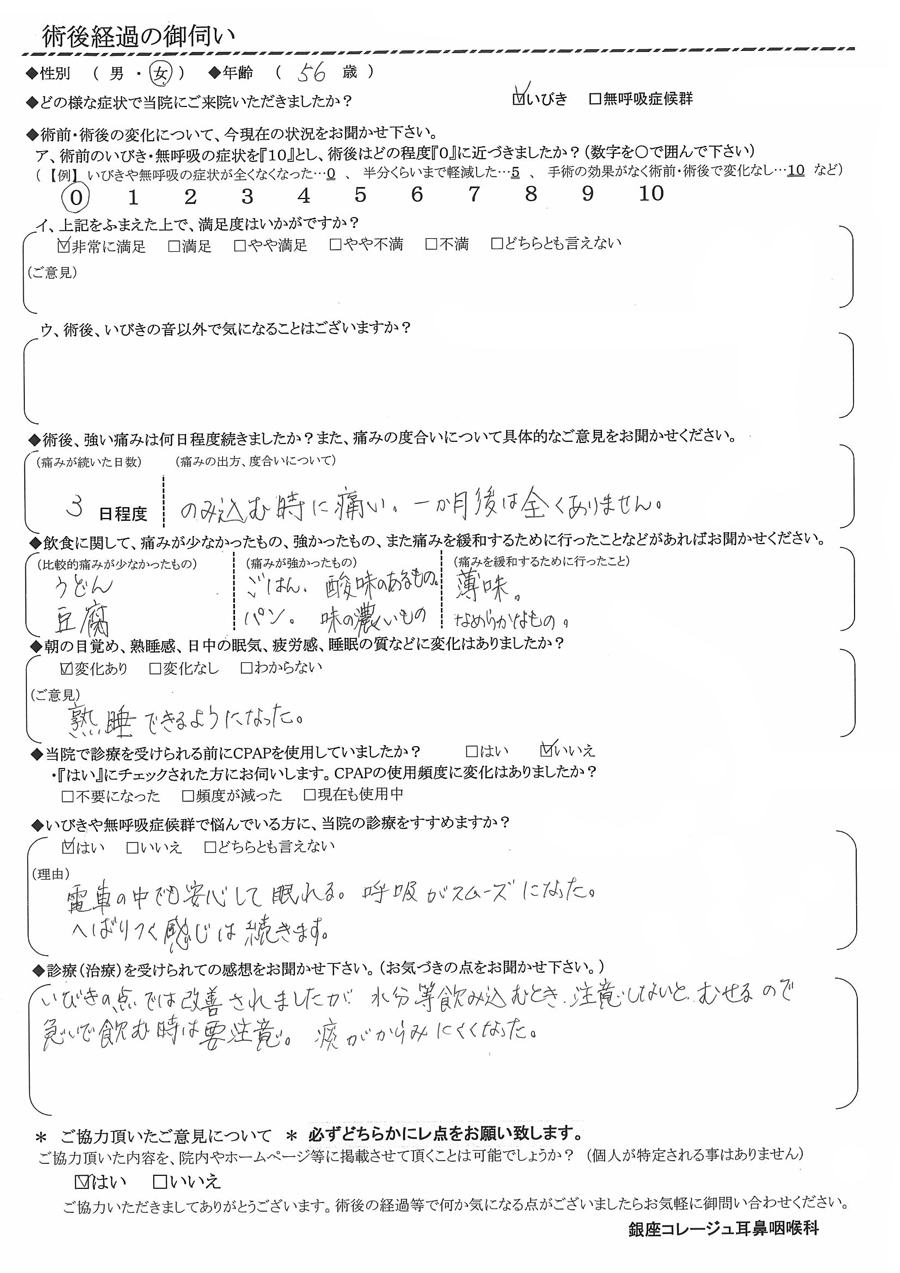 術後経過の御伺い
◆性別 （ 男 ・ 女 ） ◆年齢 （ 56 歳 ）
◆どの様な症状で当院にご来院いただきましたか？ ☑いびき □無呼吸症候群
◆術前・術後の変化について、今現在の状況をお聞かせ下さい。
ア、術前のいびき・無呼吸の症状を『10』とし、術後はどの程度『0』に近づきましたか？（数字を○で囲んで下さい）
（【例】いびきや無呼吸の症状が全くなくなった…0 、 半分くらいまで軽減した…5 、 手術の効果がなく術前・術後で変化なし…10 など）
0 1 2 3 4 5 6 7 8 9 10
イ、上記をふまえた上で、満足度はいかがですか？
☑非常に満足 □満足 □やや満足 □やや不満 □不満 □どちらとも言えない
（ご意見）
ウ、術後、いびきの音以外で気になることはございますか？
◆術後、強い痛みは何日程度続きましたか？また、痛みの度合いについて具体的なご意見をお聞かせください。
（痛みが続いた日数） （痛みの出方、度合いについて）
3 日程度 のみ込む時に痛い。一か月後は全くありません。
◆飲食に関して、痛みが少なかったもの、強かったもの、また痛みを緩和するために行ったことなどがあればお聞かせください。
（比較的痛みが少なかったもの） （痛みが強かったもの） （痛みを緩和するために行ったこと）
うどん ごはん、酸味のあるもの。 薄味。
豆腐 パン。 味の濃いもの なめらかなもの。
◆朝の目覚め、熟睡感、日中の眠気、疲労感、睡眠の質などに変化はありましたか？
☑変化あり □変化なし □わからない
（ご意見）
熟睡できるようになった。
◆当院で診療を受けられる前にCPAPを使用していましたか？ □はい ☑いいえ
・『はい』にチェックされた方にお伺いします。CPAPの使用頻度に変化はありましたか？
□不要になった □頻度が減った □現在も使用中
◆いびきや無呼吸症候群で悩んでいる方に、当院の診療をすすめますか？
☑はい □いいえ □どちらとも言えない
（理由）
電車の中でも安心して眠れる。呼吸がスムーズになった。
へばりつく感じは続きます。
◆診療（治療）を受けられての感想をお聞かせ下さい。（お気づきの点をお聞かせ下さい。）
いびきの点では改善されましたが 水分等飲み込むとき、注意しないと むせるので
急いで飲む時は要注意。 痰がからみにくくなった。
＊ ご協力頂いたご意見について ＊ 必ずどちらかにレ点をお願い致します。
ご協力頂いた内容を、院内やホームページ等に掲載させて頂くことは可能でしょうか？ （個人が特定される事はありません）
☑はい □いいえ
ご協力いただきましてありがとうございます。術後の経過等で何か気になる点がございましたらお気軽に御問い合わせください。
銀座コレージュ耳鼻咽喉科